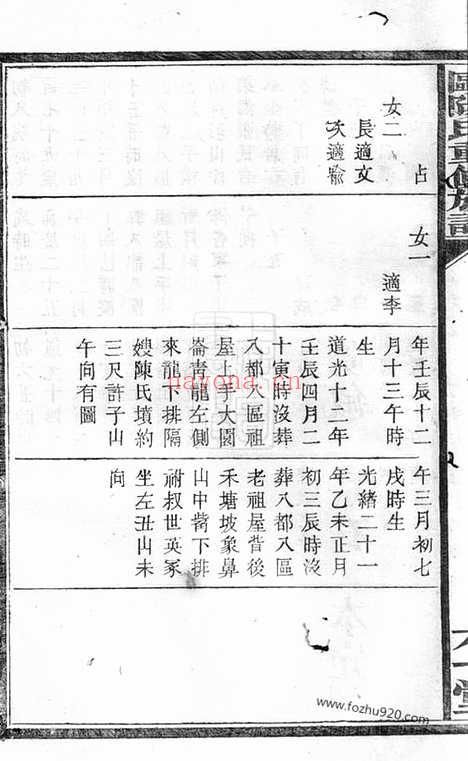 歐陽氏重修族譜
六一堂
占
女二
長適文
次適喻
女一
適李
年壬辰十二
月十三午時
生
道光十二年
壬辰四月二
十寅時沒葬
八都八區祖
屋上手大園
崙青龍左側
來龍下排隔
嫂陳氏墳約
三尺許子山
午向有圖
午三月初七
戌時生
光緒二十一
年乙未正月
初三辰時沒
葬八都八區
老祖屋背後
禾塘坡象鼻
山中嘴下排
祔叔世英冢
坐左丑山未
向
nayona.cn
www.fozhu920.com